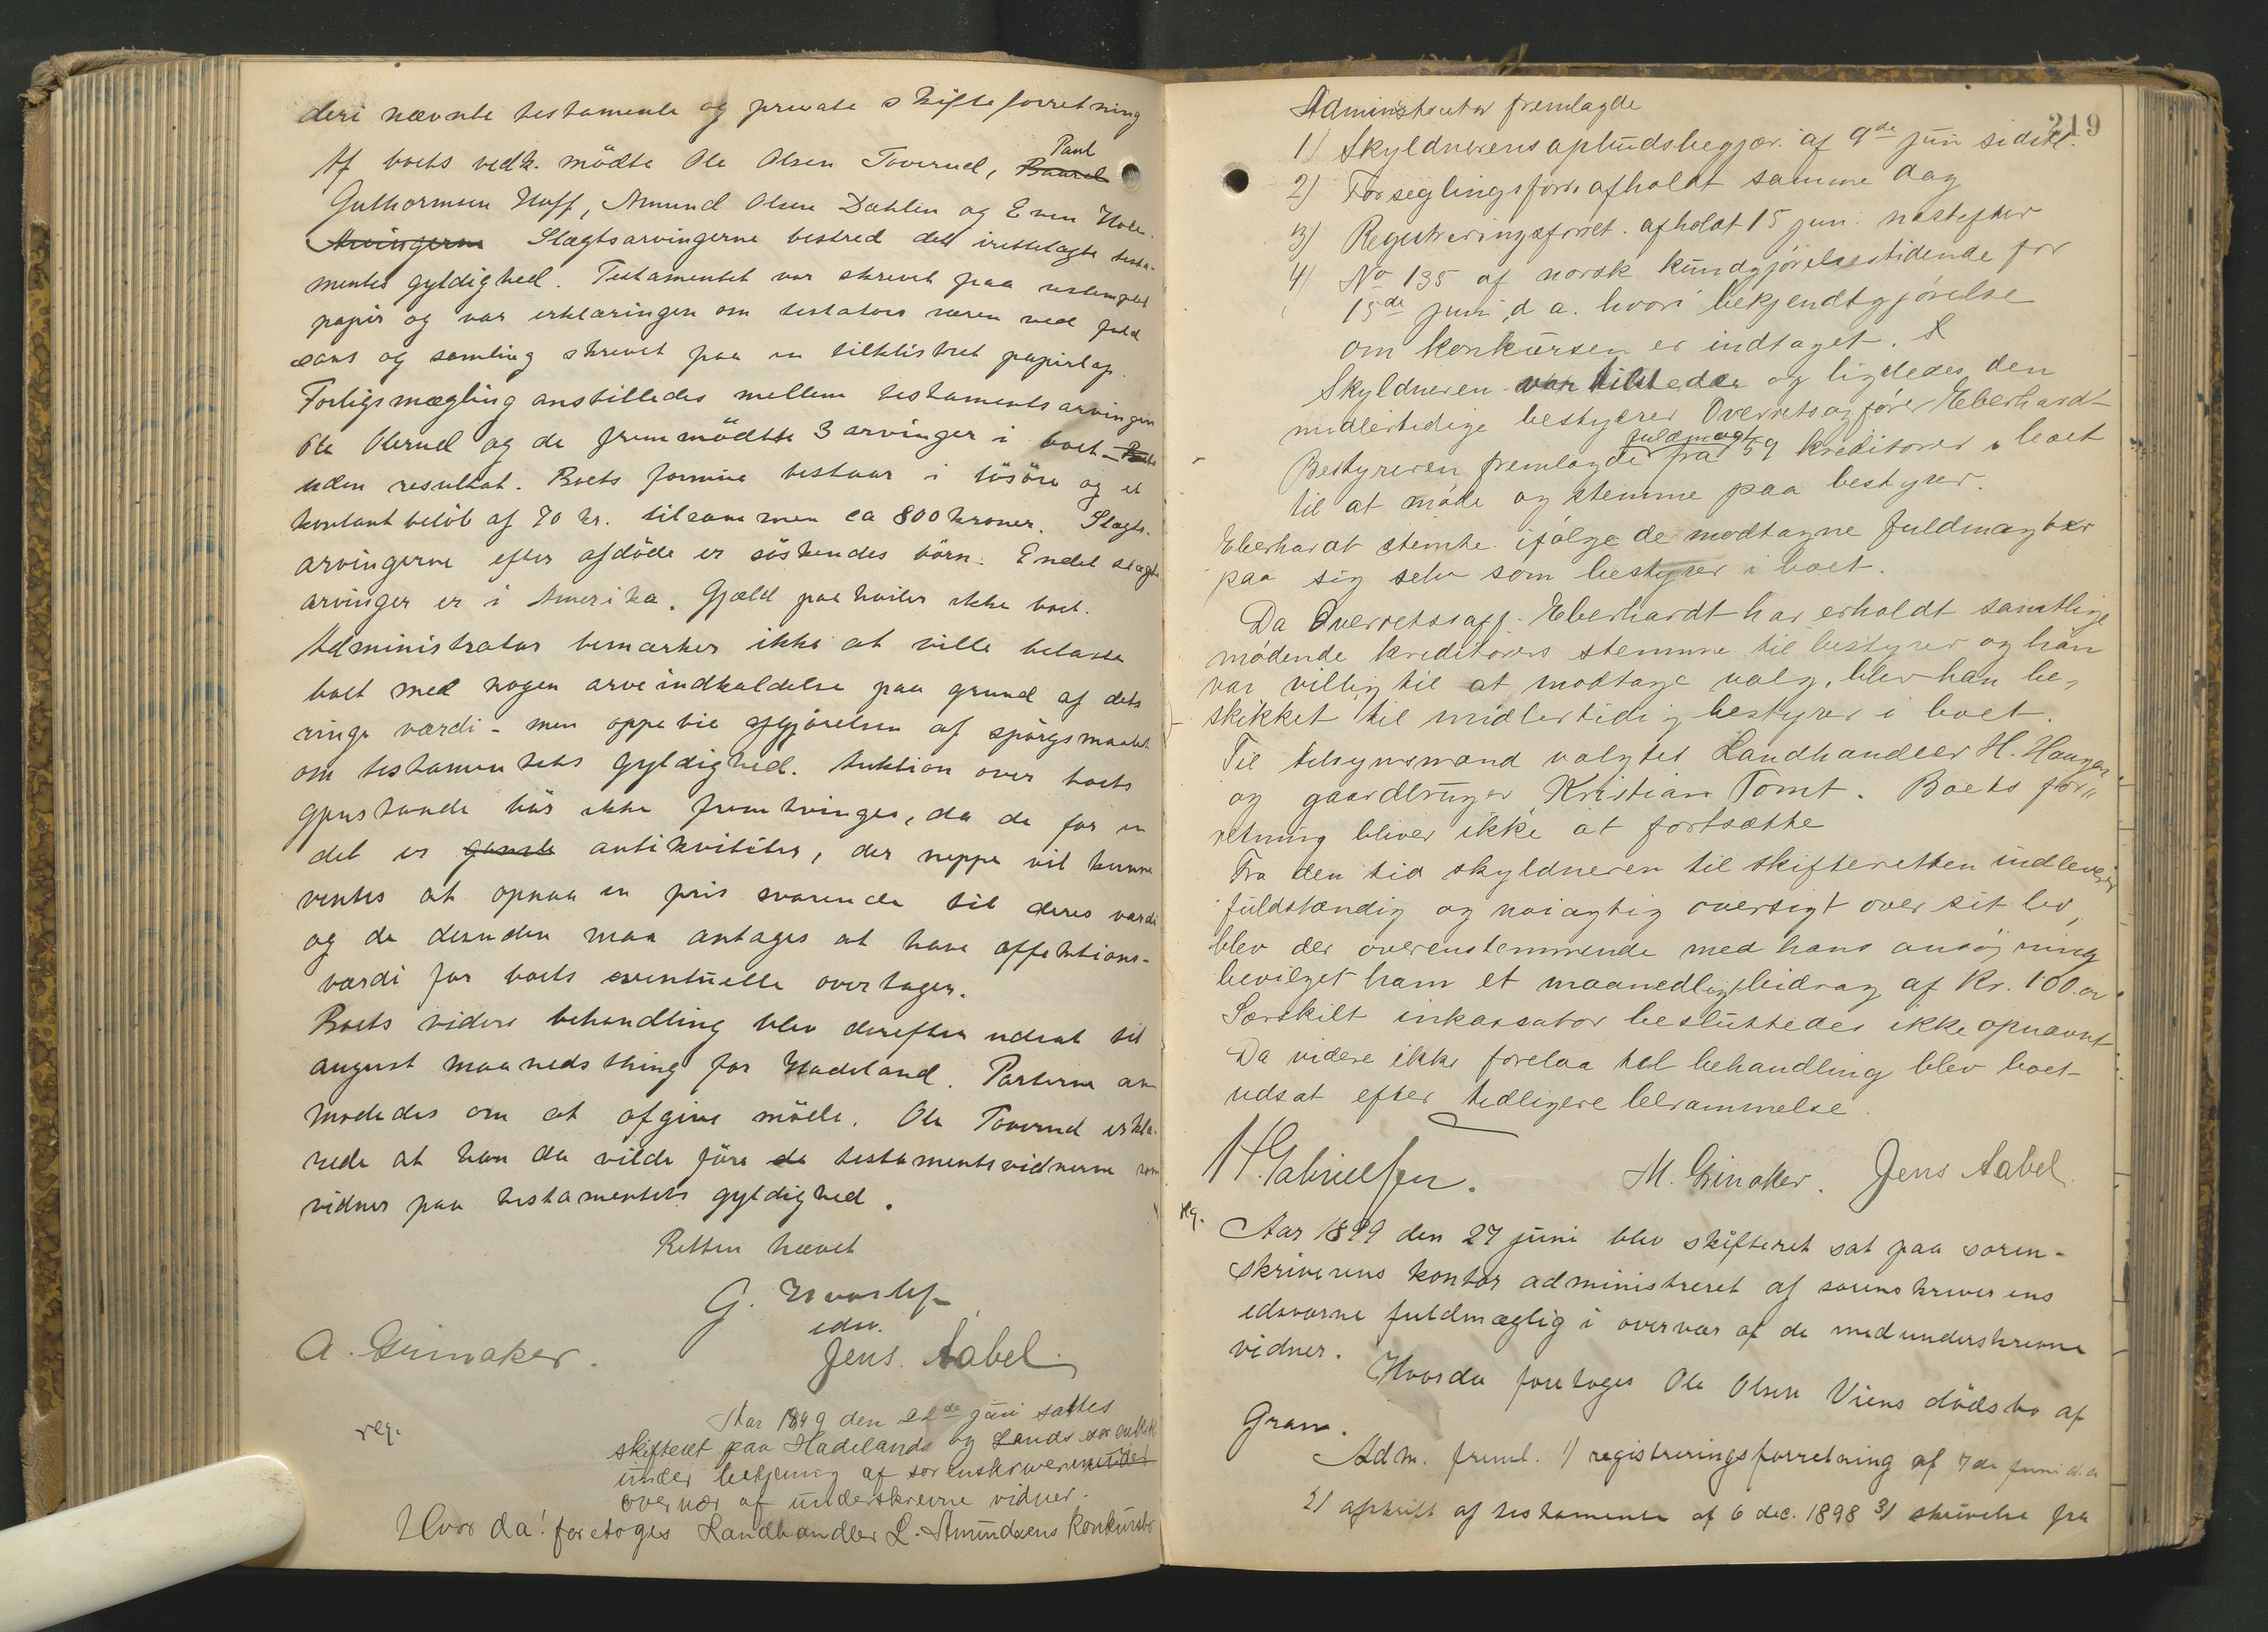 deri nævnte testamente og private skifteforretning
Paul
Af boets vedk. mödte Ole Olsen Toverud, Baard
Guthormsen Hoff, Amund Olsen Dahlen og Even Hole.
Arvingerne Slægtsarvingerne bestred det irettelagte testa-
mentes gyldighed. Testamentet var skrevet paa ustemplet
papir og var erklæringen om testators væren ved fuld
sans og samling skrevet paa en tilklistret papirlap.
Forligsmægling anstilledes mellem testamentsarvingen
Ole Overud og de fremmödte 3 arvinger i boet
uden resultat. Boets formue bestaar i lösöre og et
kontant belöb af 70 kr. tilsammen ca 800 kroner. Slægts-
arvingerne efter afdöde er söskendes börn. Endel slægts
arvinger er i Amerika. Gjæld paahviler ikke boet.
Administrator bemærker ikke at ville belaste
boet med nogen arveindkaldelse paa grund af dets
ringe værdi - men oppebie afgjörelsen af spörgsmaalet
om testamentets gyldighed. Auktion over boets
gjenstande bör ikke fremtvinges, da de for en
del er gamle antikviteter, der neppe vil kunne
ventes at opnaa en pris svarende til deres værdi
og de desuden maa antages at have affektions-
værdi for boets eventuelle overtager.
Boets videre behandling blev derefter udsat til
august maanedsthing for Hadeland. Parterne an-
modedes om at afgive möde. Ole Toverud erklæ-
rede at han da vilde före de testamentsvidnerne som
vidner paa testamentets gyldighed.
Retten hævet
G.
edsv.
A. Grinaker. Jens Aabel.
reg.
Aar 1899 den 22de juni sattes
skifteret paa Hadelands og Lands sorenskr.k
under betjening af sorenskriveren under
overvær af underskrevne vidner.
Hvor da! foretoges Landhandler L. Amundsens Konkursbo
219
Administrator fremlagde
1) Skyldnerens opbudsbegjær. af 9de juni sidstl.
2) Forseglingsforr. afholdt samme dag
3) Registreringsforret. afholdt 15 juni næstefter
4) No 135 af norsk kundgjörelsestidende for
15de juni d. a. hvori bekjendtgjörelse
om konkursen er indtaget.
Skyldneren var tilstede og ligeledes den
midlertidige bestyrer Overretssagfører Eberhardt
fuldmagt
Bestyreren fremlagde fra 59 kreditorer i boet
til at møde og stemme paa bestyrer.
Eberhardt stemte ifølge de modtagne fuldmagter
paa sig selv som bestyrer i boet.
Da Overretssagf. Eberhardt har erholdt samtlige
mødende kreditorers stemme til bestyrer og han
var villig til at modtage valg, blev han be-
skikket til midlertidig bestyrer i boet.
Til tilsynsmænd valgtes Landhandler H. Haugen
og gaardbruger Kristian Tomt. Boets for-
retning bliver ikke at fortsætte
Fra den tid skyldneren til skifteretten indleverer
fuldstændig og nøiagtig oversigt over sit bo,
blev der overensstemmende med hans ansøgning
bevilget ham et maanedligt bidrag af Kr. 100.oo
Særskilt inkassator besluttedes ikke opnævnt
Da videre ikke forelaa til behandling blev boet
udsat efter tidligere berammelse.
H. Gabrielsen. M. Grinaker. Jens Aabel.
reg.
Aar 1899 den 27 juni blev skifteret sat paa soren-
skriverens kontor administreret af sorenskriverens
edsvorne fuldmægtig i overvær af de medunderskrevne
vidner.
Hvorda foretoges Ole Olsen Viens dödsbo af
Gran.
Adm. freml. 1) registreringsforretning af 7de juni d.a
2) afskrift af testamente af 6 dec. 1898 3) skrivelse fra